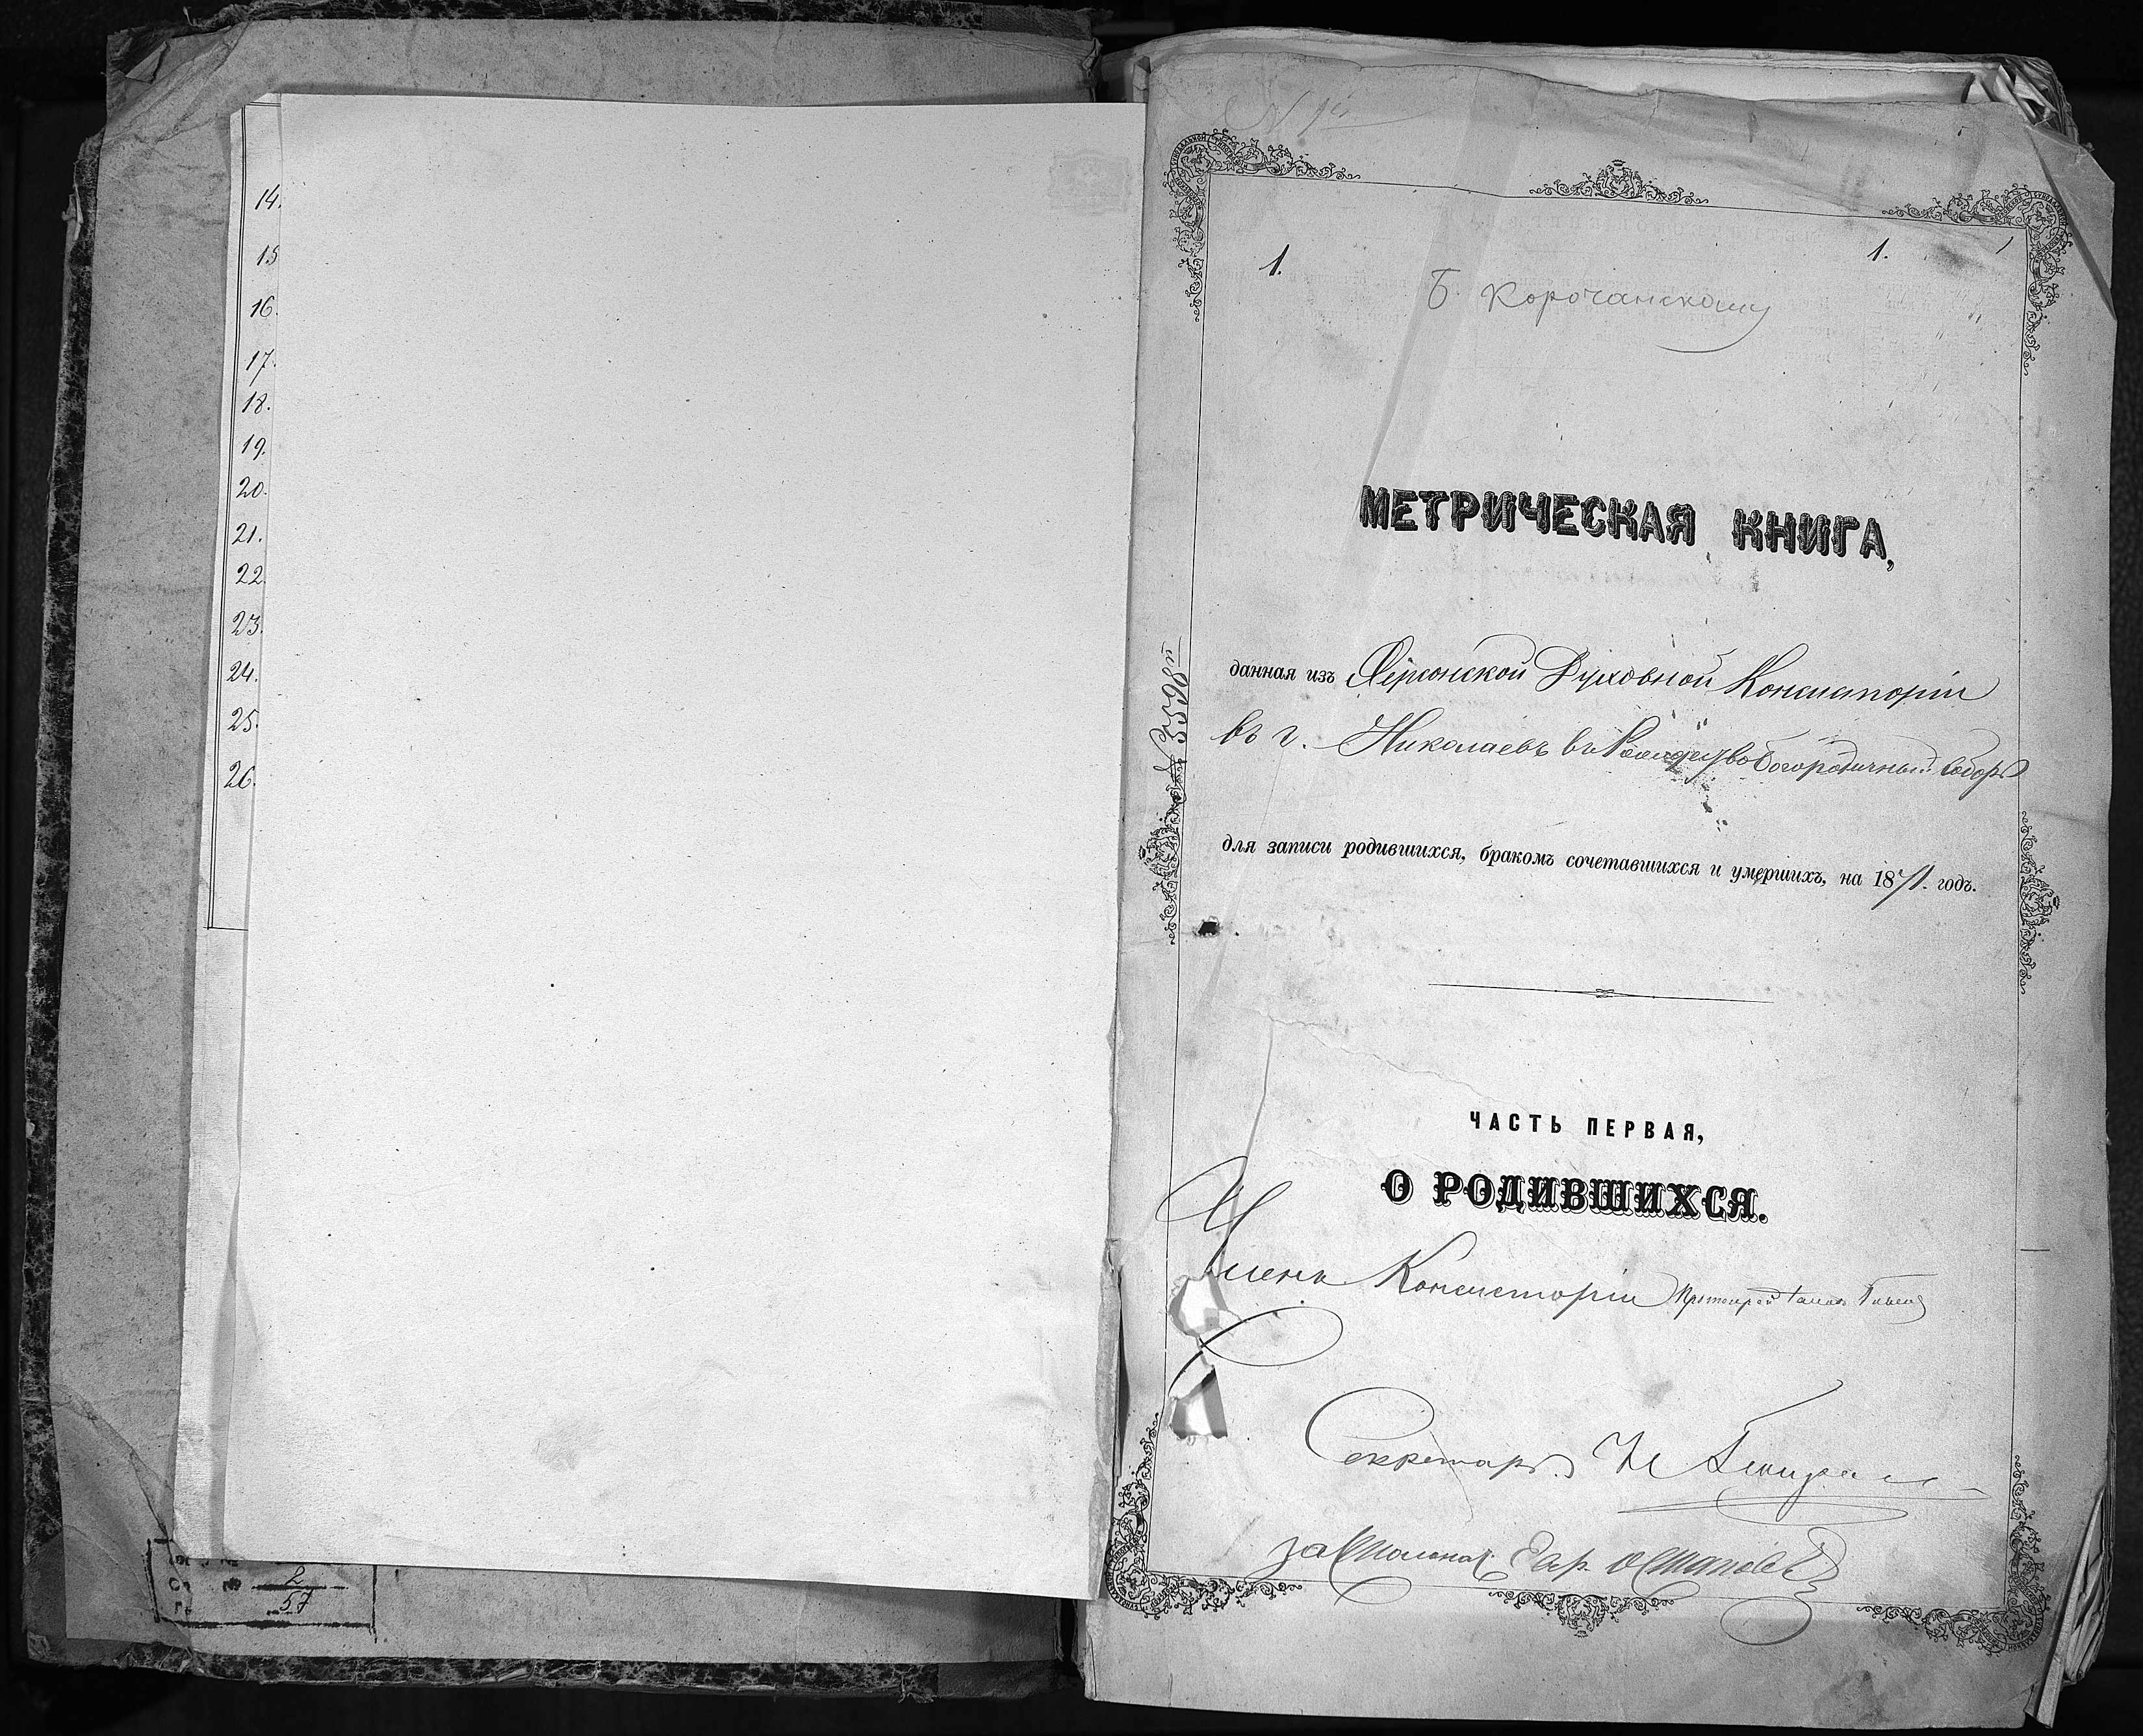 14.
15
16.
17.
18.
19.
20.
21.
22.
23.
24.
25.
26.
2
57
1.
1.
1
Б. Корочанскому
МЕТРИЧЕСКАЯ КНИГА,
данная изъ Херсонской Духовной Консисторіи
въ г. Николаевъ въ Рождество Богородичный Соборъ
для записи родившихся, бракомъ сочетавшихся и умершихъ, на 1871. годъ.
ЧАСТЬ ПЕРВАЯ,
О РОДИВШИХСЯ.
Членъ Консисторіи Протоіерей
Секретарь